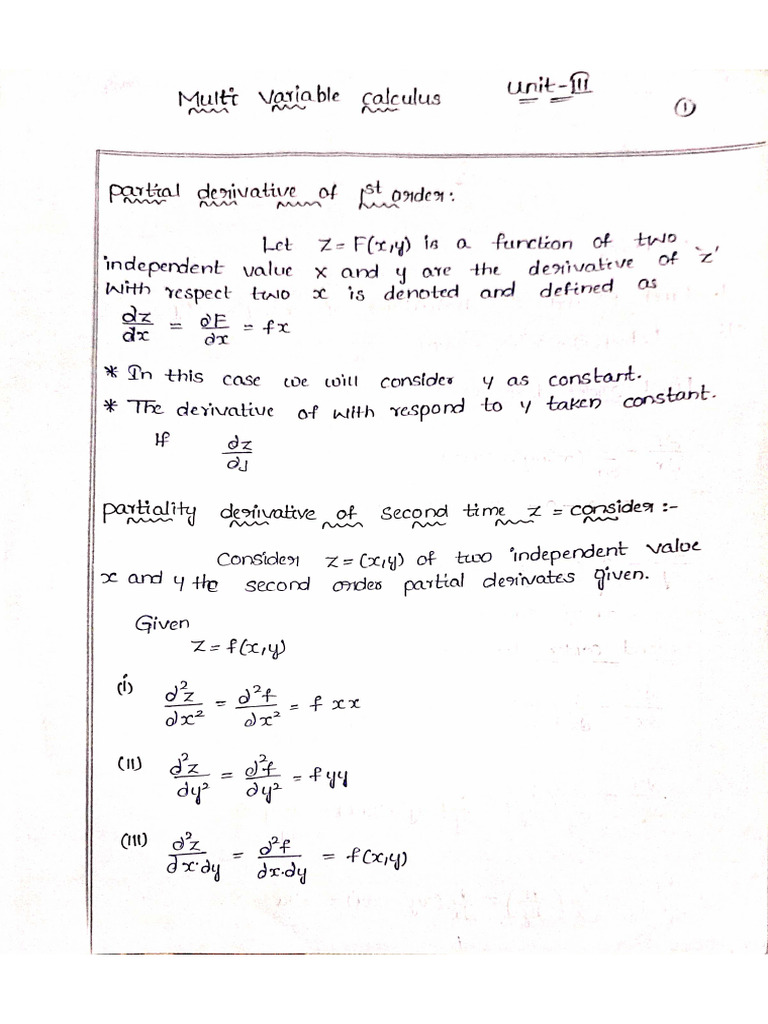 Multi Variable Calculus Unit-III
1
partial derivative of 1st order:
Let Z = F(x,y) is a function of two
independent value x and y are the derivative of 'z'
with respect two x is denoted and defined as
∂z/∂x = ∂F/∂x = fx
* In this case we will consider y as constant.
* The derivative of with respond to y taken constant.
If ∂z/∂y
partiality derivative of second time z = consider :-
Consider z = (x,y) of two independent value
x and y the second order partial derivates given.
Given
Z = f(x,y)
(i) ∂²z/∂x² = ∂²f/∂x² = f xx
(II) ∂²z/∂y² = ∂²f/∂y² = f yy
(III) ∂²z/∂x.∂y = ∂²f/∂x.∂y = f(x,y)